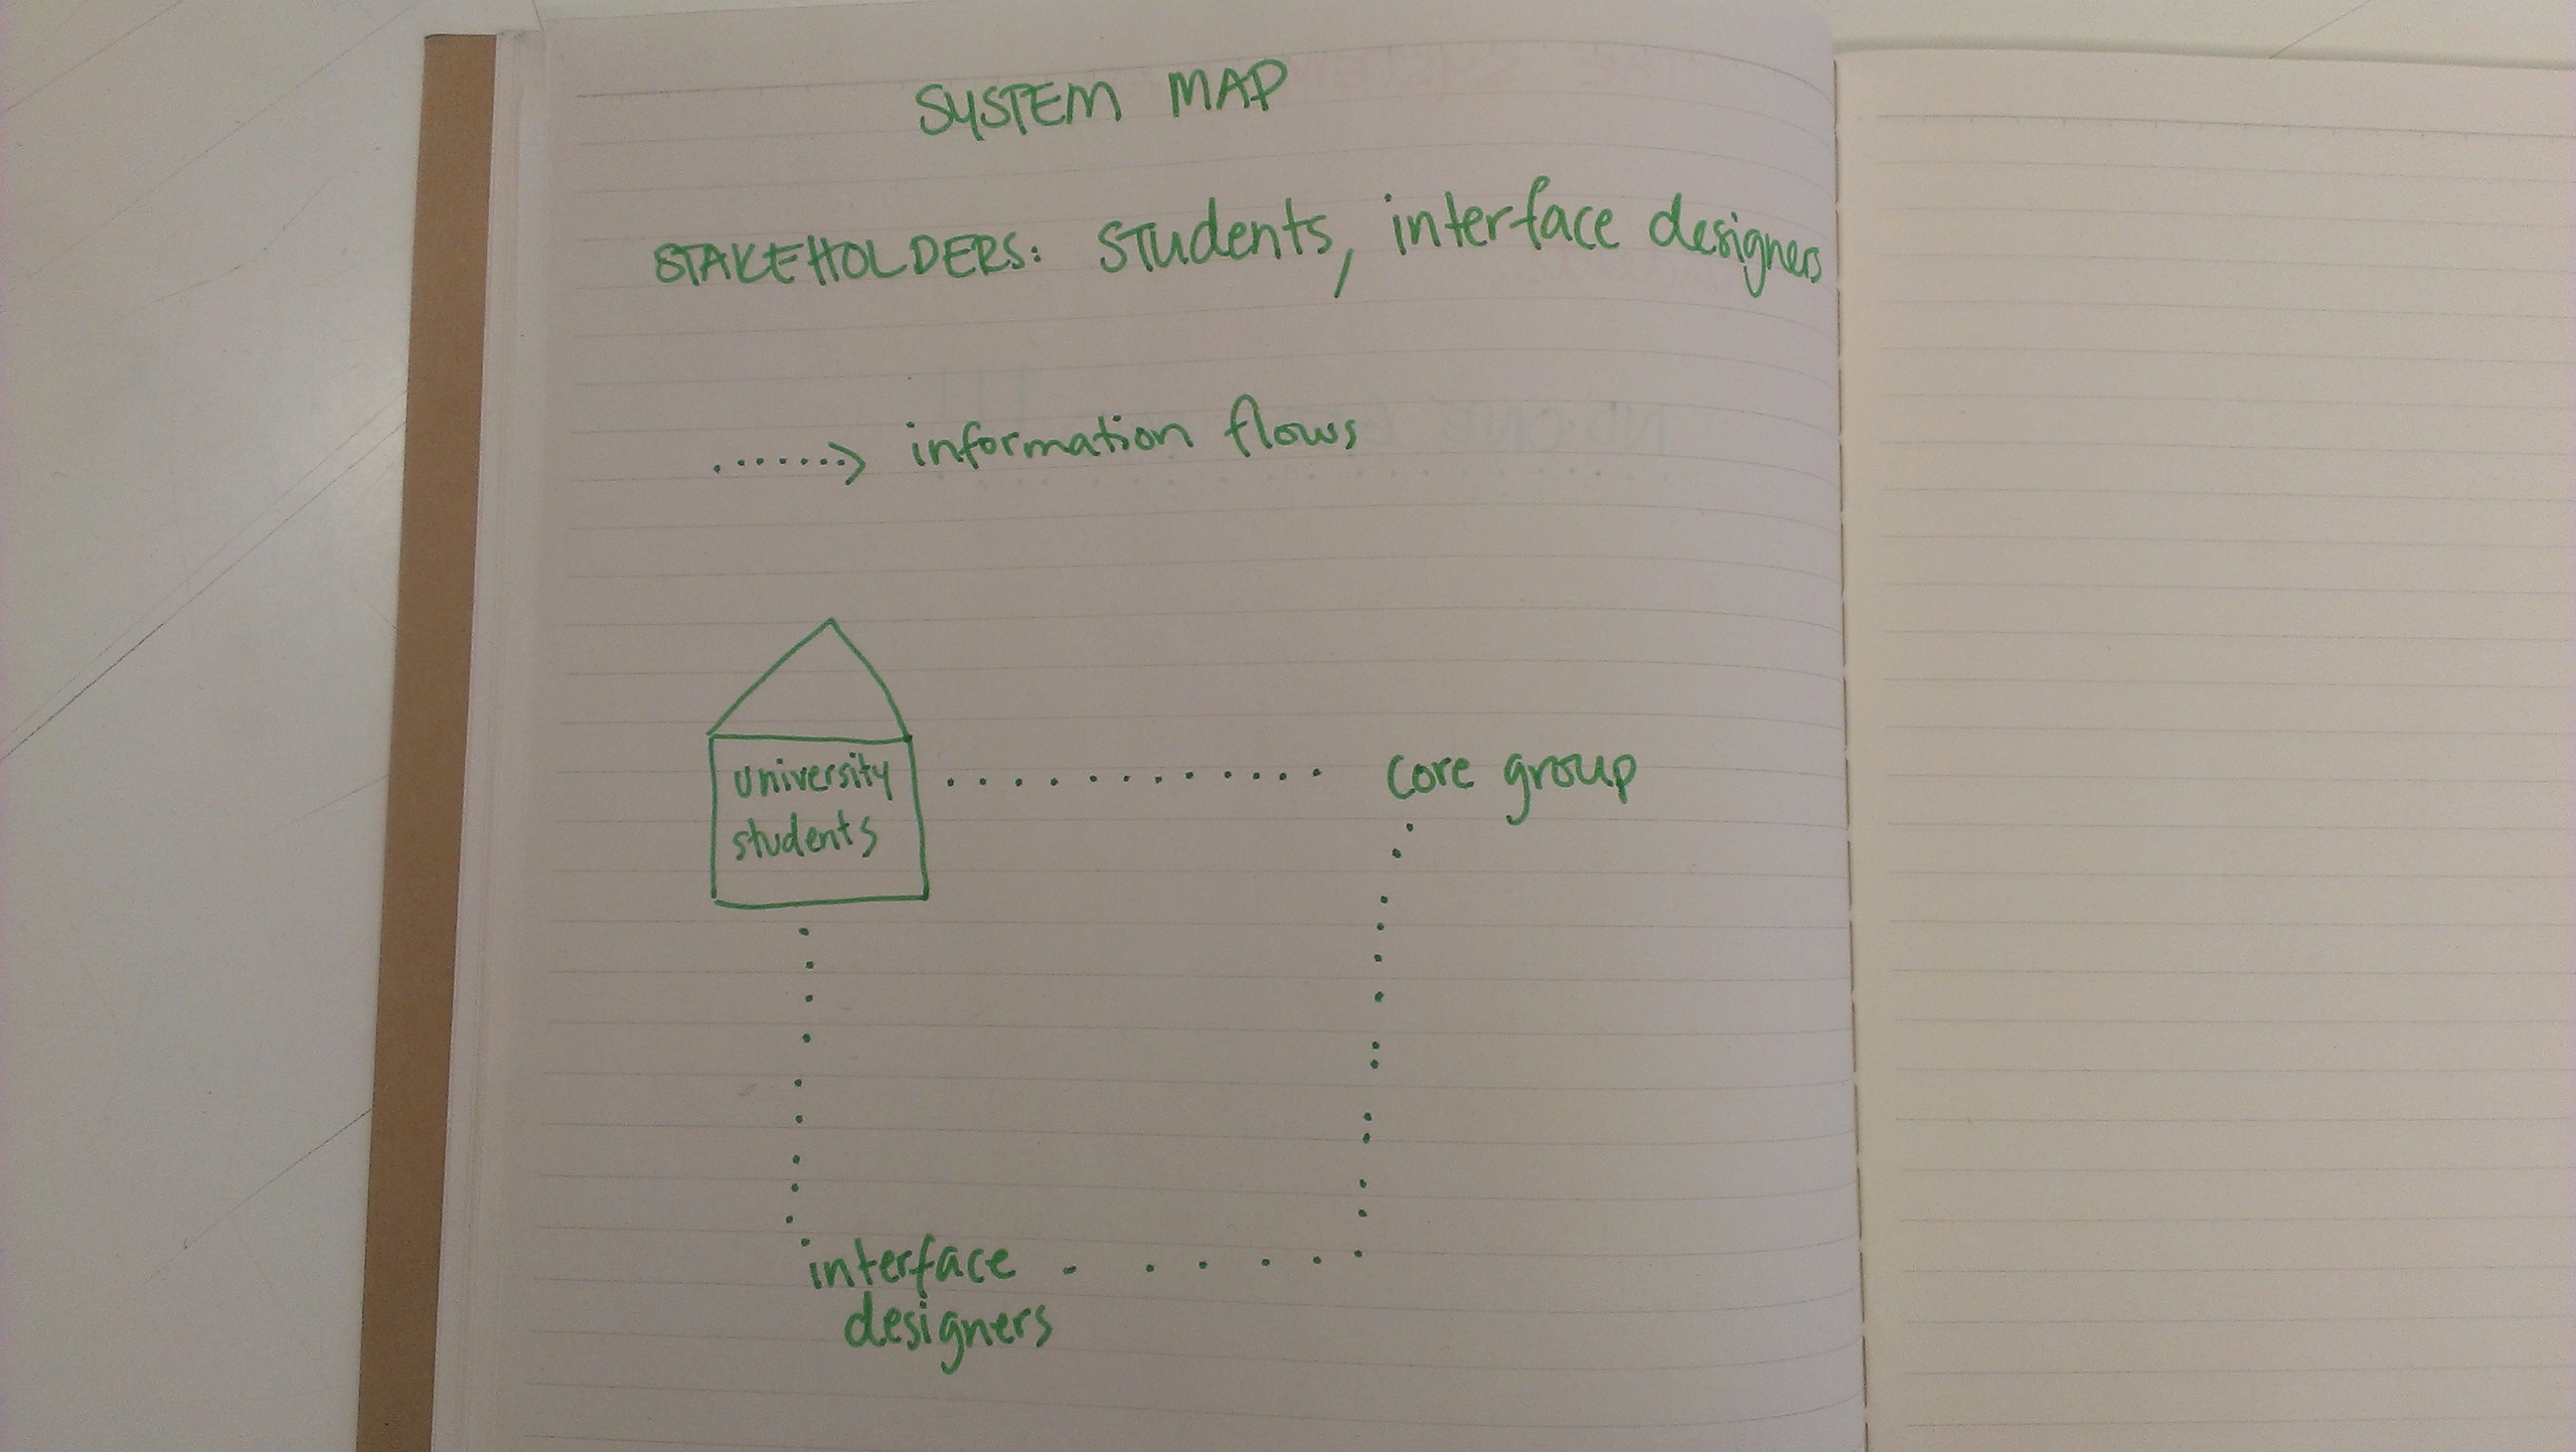 SYSTEM MAP
STAKEHOLDERS: students, interface designers
information flows
university
students
core group
interface
designers